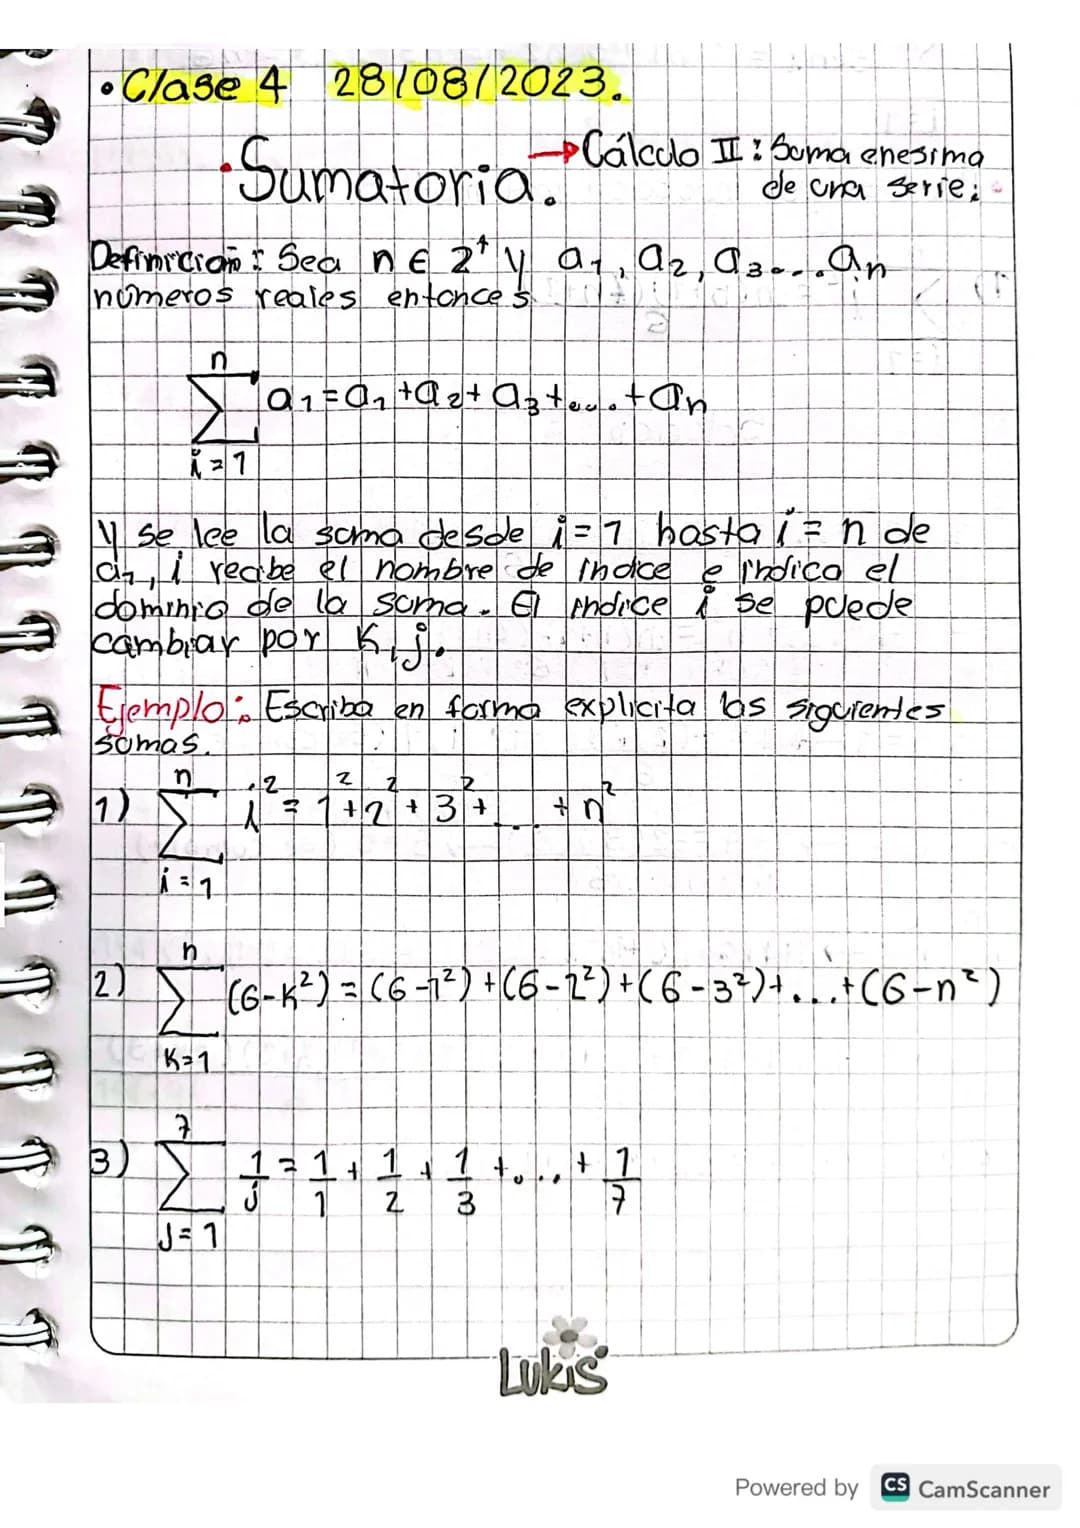 • Clase 4 28/08/2023.
• Sumatoria. → Cálculo II: Suma enesima
de una serie:
Definición: Sea n ∈ Z⁺ y a₁, a₂, a₃....aₙ
números reales entonces
n
∑ a₁ = a₁ + a₂ + a₃ + .... + aₙ
i = 1
y se lee la suma desde i = 1 hasta i = n de
a₁, i recibe el nombre de indice e indica el
dominio de la suma. El indice i se puede
cambiar por K, j.
Ejemplo: Escriba en forma explicita las siguientes
sumas.
n
1) ∑ i² = 1² + 2² + 3² + ... + n²
i = 1
n
2) ∑ (6-K²) = (6-1²) + (6-2²) + (6-3²) + ... + (6-n²)
K=1
7
3) ∑ 1/j = 1/1 + 1/2 + 1/3 + .... + 1/7
J = 1
Lukis
Powered by CS CamScanner